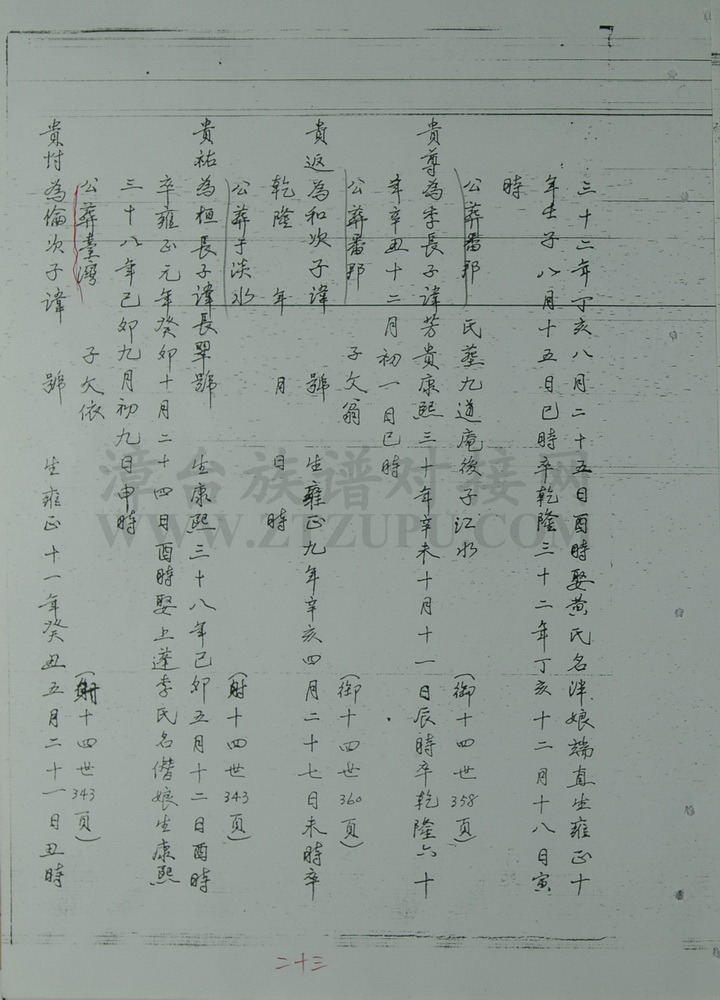 三十二年丁亥八月二十五日酉時娶黃氏名泮娘端直生雍正十
年壬子八月十五日巳時卒乾隆三十二年丁亥十二月十八日寅
時
公葬番邦 氏葬九道庵後子江水 (御十四世358頁)
貴尊為季長子諱芳貴康熙三十年辛未十月十一日辰時卒乾隆六十
年辛丑十二月初一日巳時
公葬番邦 子文翁 (御十四世360頁)
貴返為和次子諱 號 生雍正九年辛亥四月二十七日未時卒
乾隆 年 月 日 時
公葬于淡水 (射十四世343頁)
貴祐為桓長子諱長 號 生康熙三十八年己卯五月十二日酉時
卒雍正元年癸卯十月二十四日酉時娶上蓬李氏名偺娘生康熙
三十八年己卯九月初九日申時
公葬臺灣 子文依 (射十四世343頁)
貴忖為倫次子諱 號 生雍正十一年癸丑五月二十一日丑時
二十三
漳台族谱对接网
WWW.ZTZUPU.COM